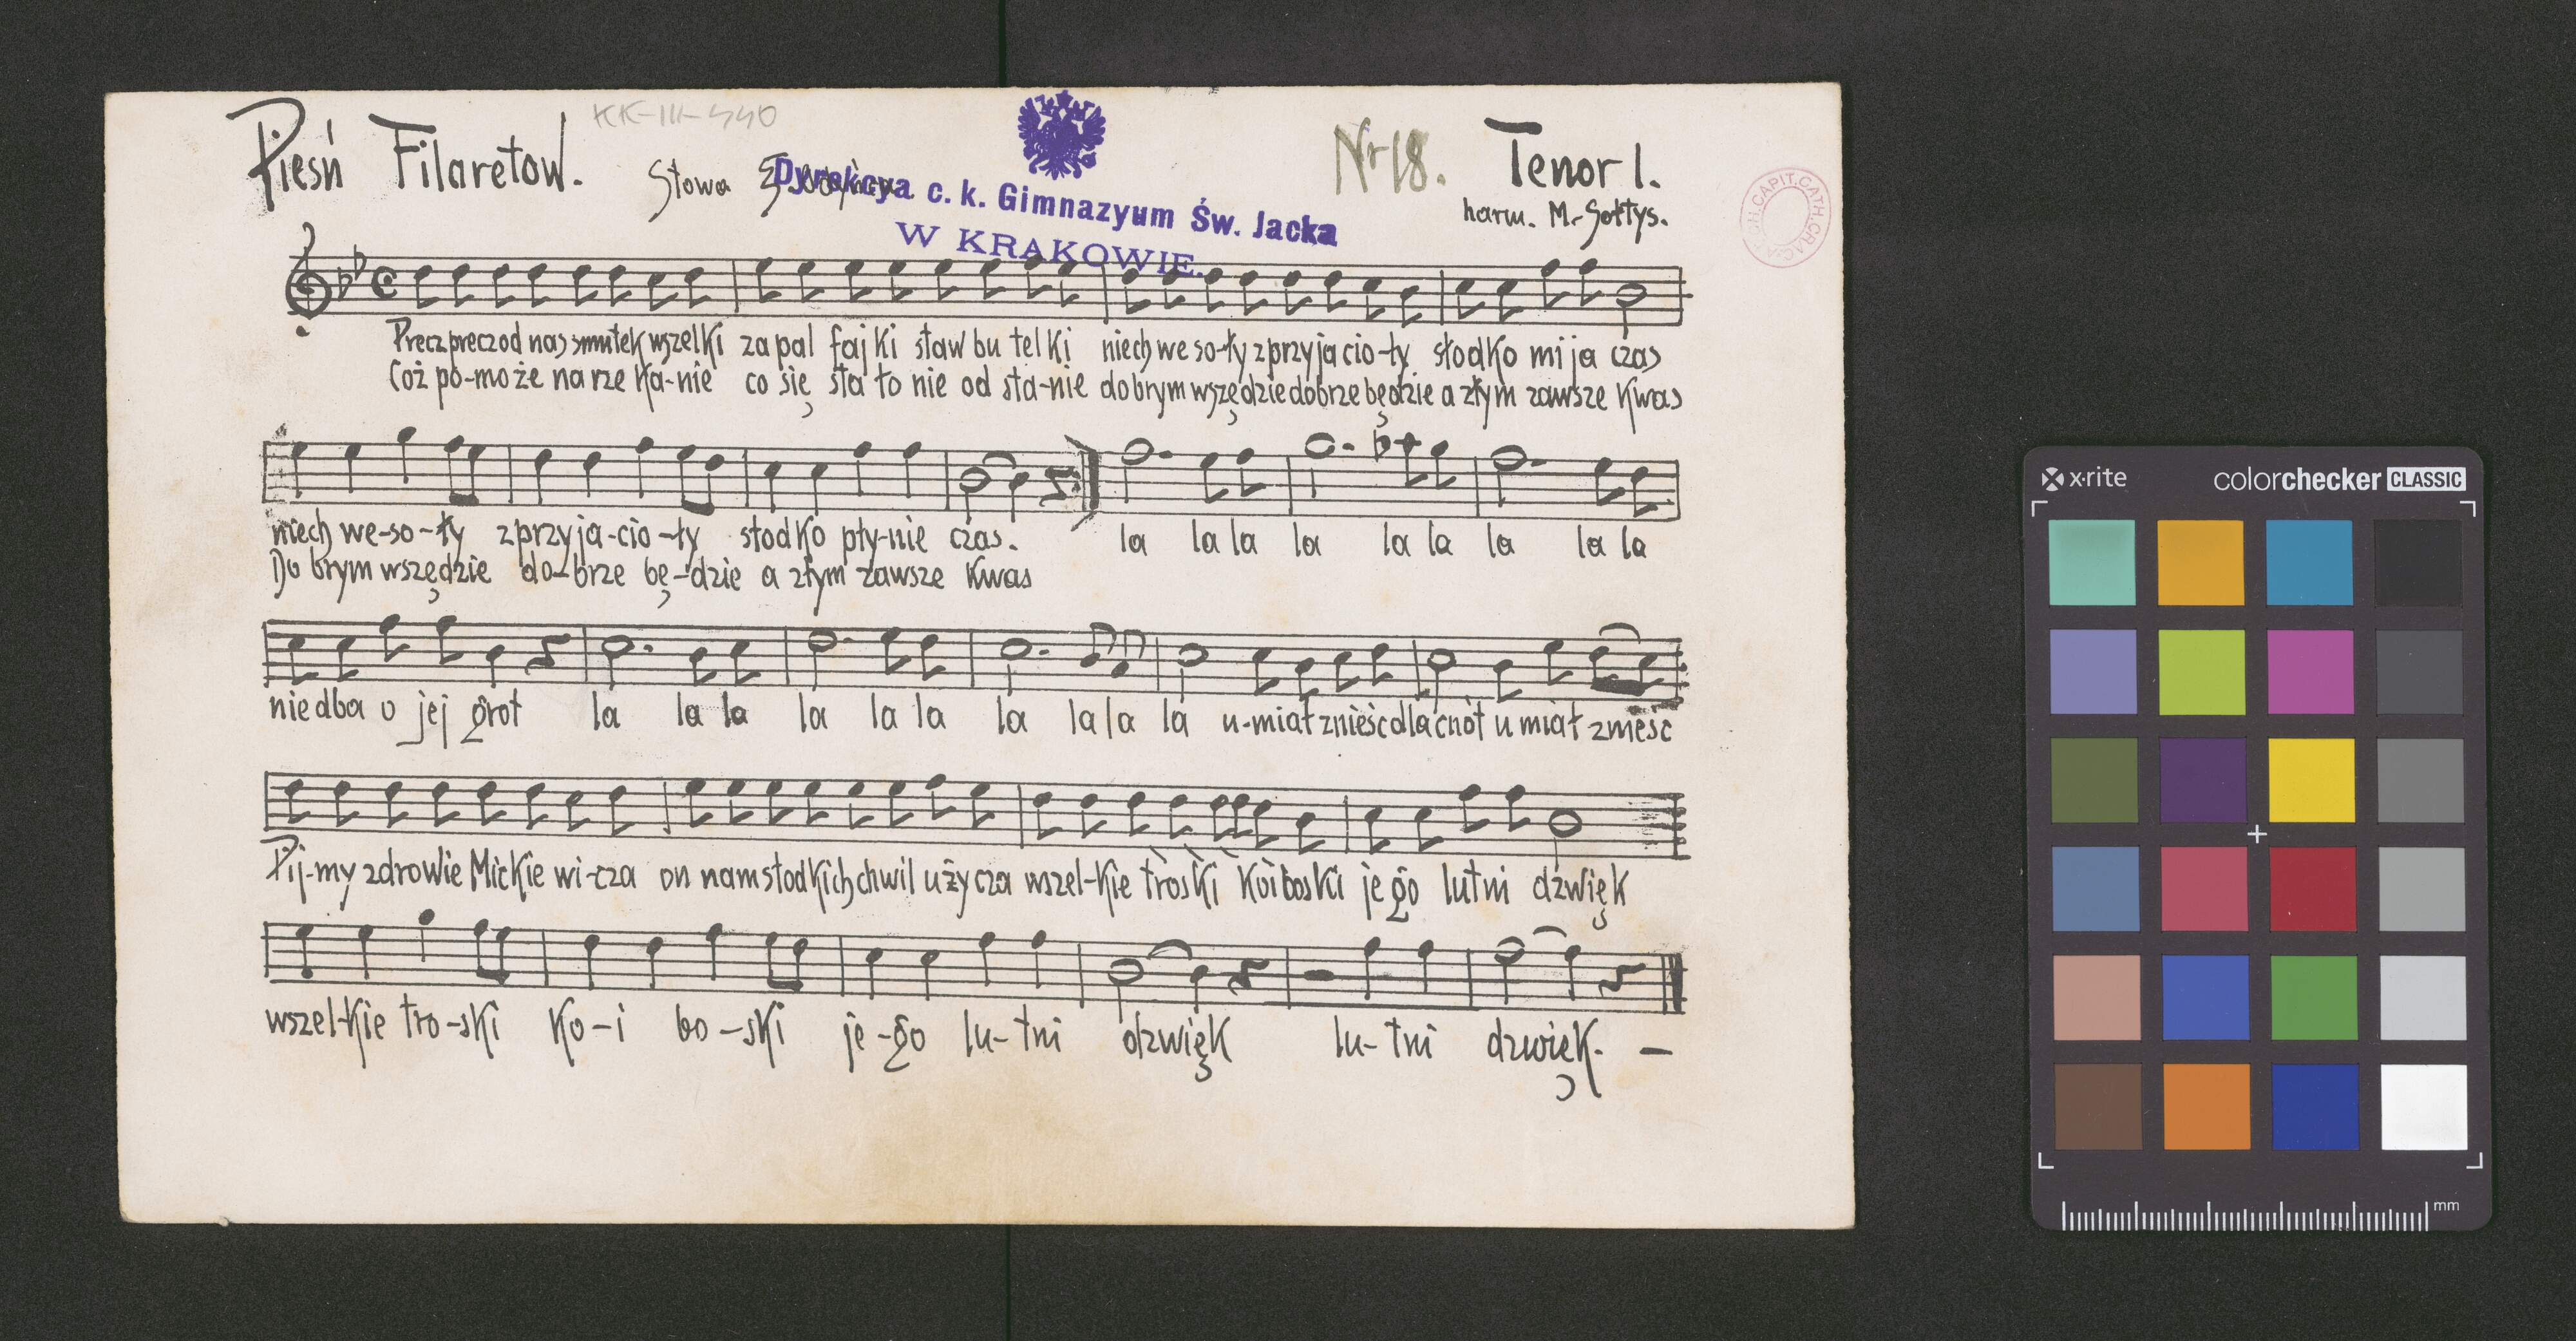 KK-III-440
Pieśń Filaretow.
Słowa
Dyrekcya c. k. Gimnazyum Św. Jacka
W KRAKOWIE.
Nr 18.
Tenor I.
harm. M. Sołtys.
Precz precz od nas smutek wszelki za pal faj ki staw bu tel ki niech we so-ły z przy ja cio-ły słodko mi ja czas
Coż po-mo że na rze ka-nie co się sta ło nie od sta-nie do brym wszę dzie dobrze będzie a złym zawsze kwas
niech we-so-ły z przy ja-cio-ły słodko pły-nie czas. la la la la la la la la la
Do brym wszędzie do-brze bę-dzie a złym zawsze kwas
nie dba o jej grot la la la la la la la la la la u-miał znieść dla cnót u miał znieść
Pij-my zdrowie Mickie wi-cza on nam słodkich chwil uży cza wszel-kie troski koi boski je go lutni dźwięk
wszel-kie tro-ski ko-i bo-ski je-go lu-tni dzwięk lu-tni dzwięk. —
x·rite
colorchecker CLASSIC
mm